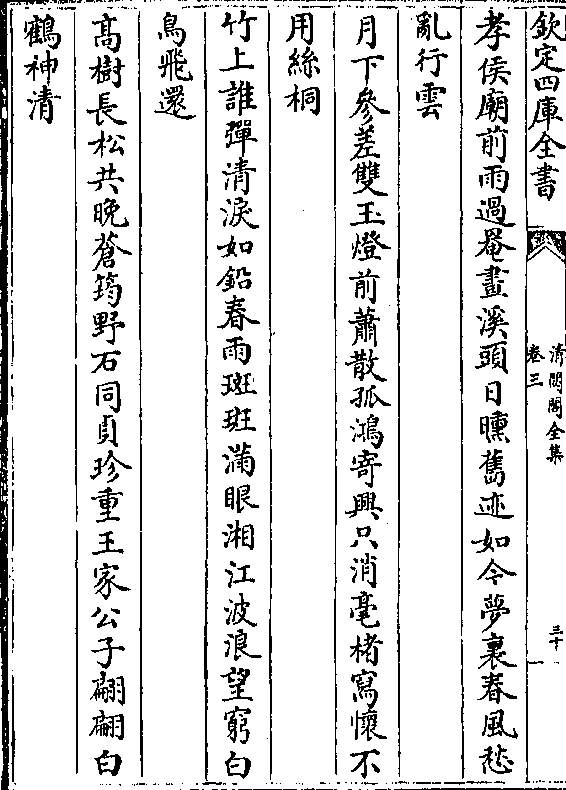 欽定四庫全書
清閟閣全集
卷三
三十
孝侯廟前雨過罨畫溪頭日曛舊迹如今夢裏春風愁
亂行雲
月下參差雙玉燈前蕭散孤鴻寄興只消毫楮寫懷不
用絲桐
竹上誰彈清淚如鉛春雨斑斑滿眼湘江波浪望窮白
鳥飛還
髙樹長松共晚蒼筠野石同貞珍重王家公子翩翩白
鶴神清